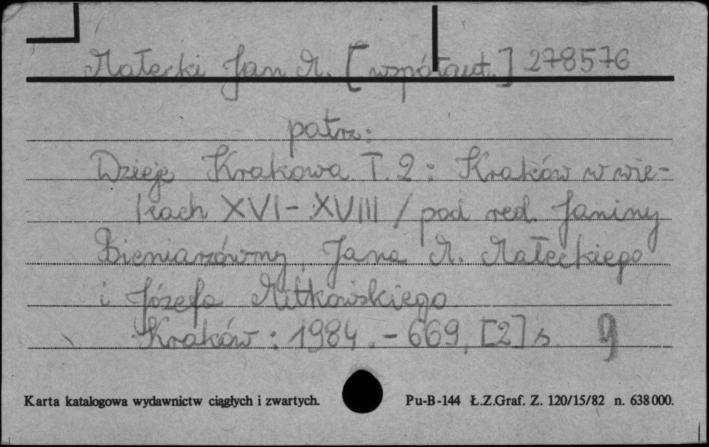 Małecki Jan M. [współaut.] 278576
patrz:
Dzieje Krakowa. T. 2: Kraków w wie-
kach XVI-XVIII / pod red. Janiny
Bieniarzówny, Jana M. Małeckiego
i Józefa Mitkowskiego.
Kraków: 1984. - 669, [2] s. 9
Karta katalogowa wydawnictw ciągłych i zwartych. Pu-B-144 Ł.Z.Graf. Z. 120/15/82 n. 638000.